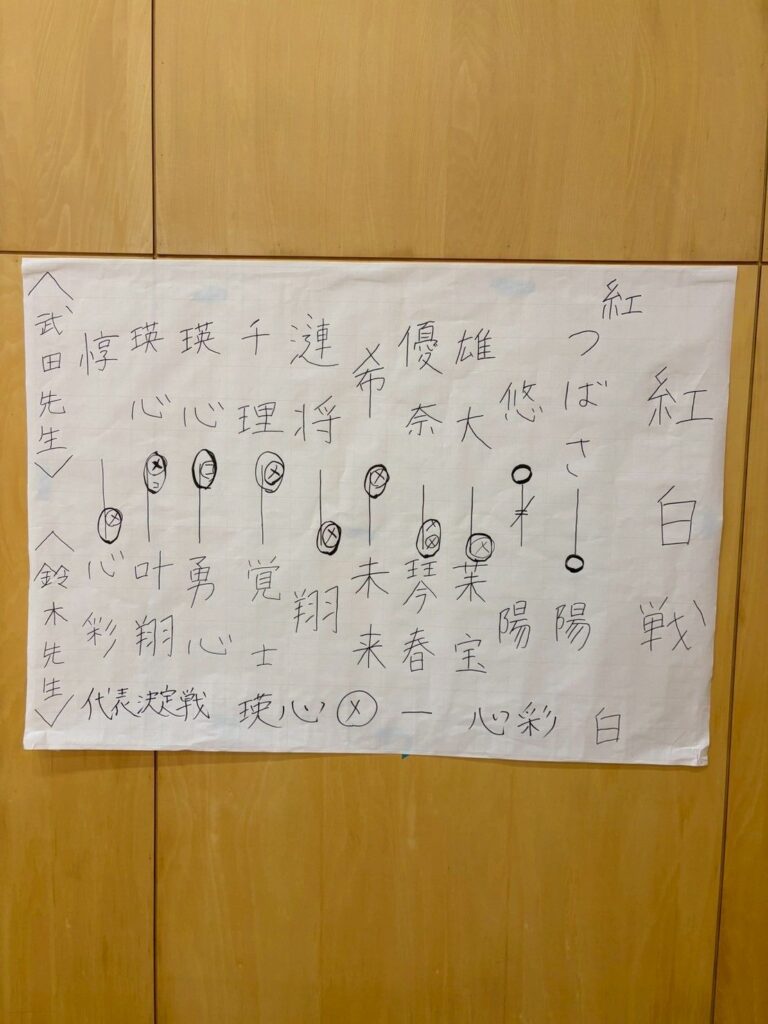 紅白戦
紅
つばさ
陽
悠
陽
雄大
茉宝
優奈
琴春
希
未来
漣将
翔
千理
覚士
瑛心
コ
勇心
瑛心
コ
叶翔
惇
心彩
〈武田先生〉
〈鈴木先生〉
白
代表決定戦 瑛心 メ 一 心彩